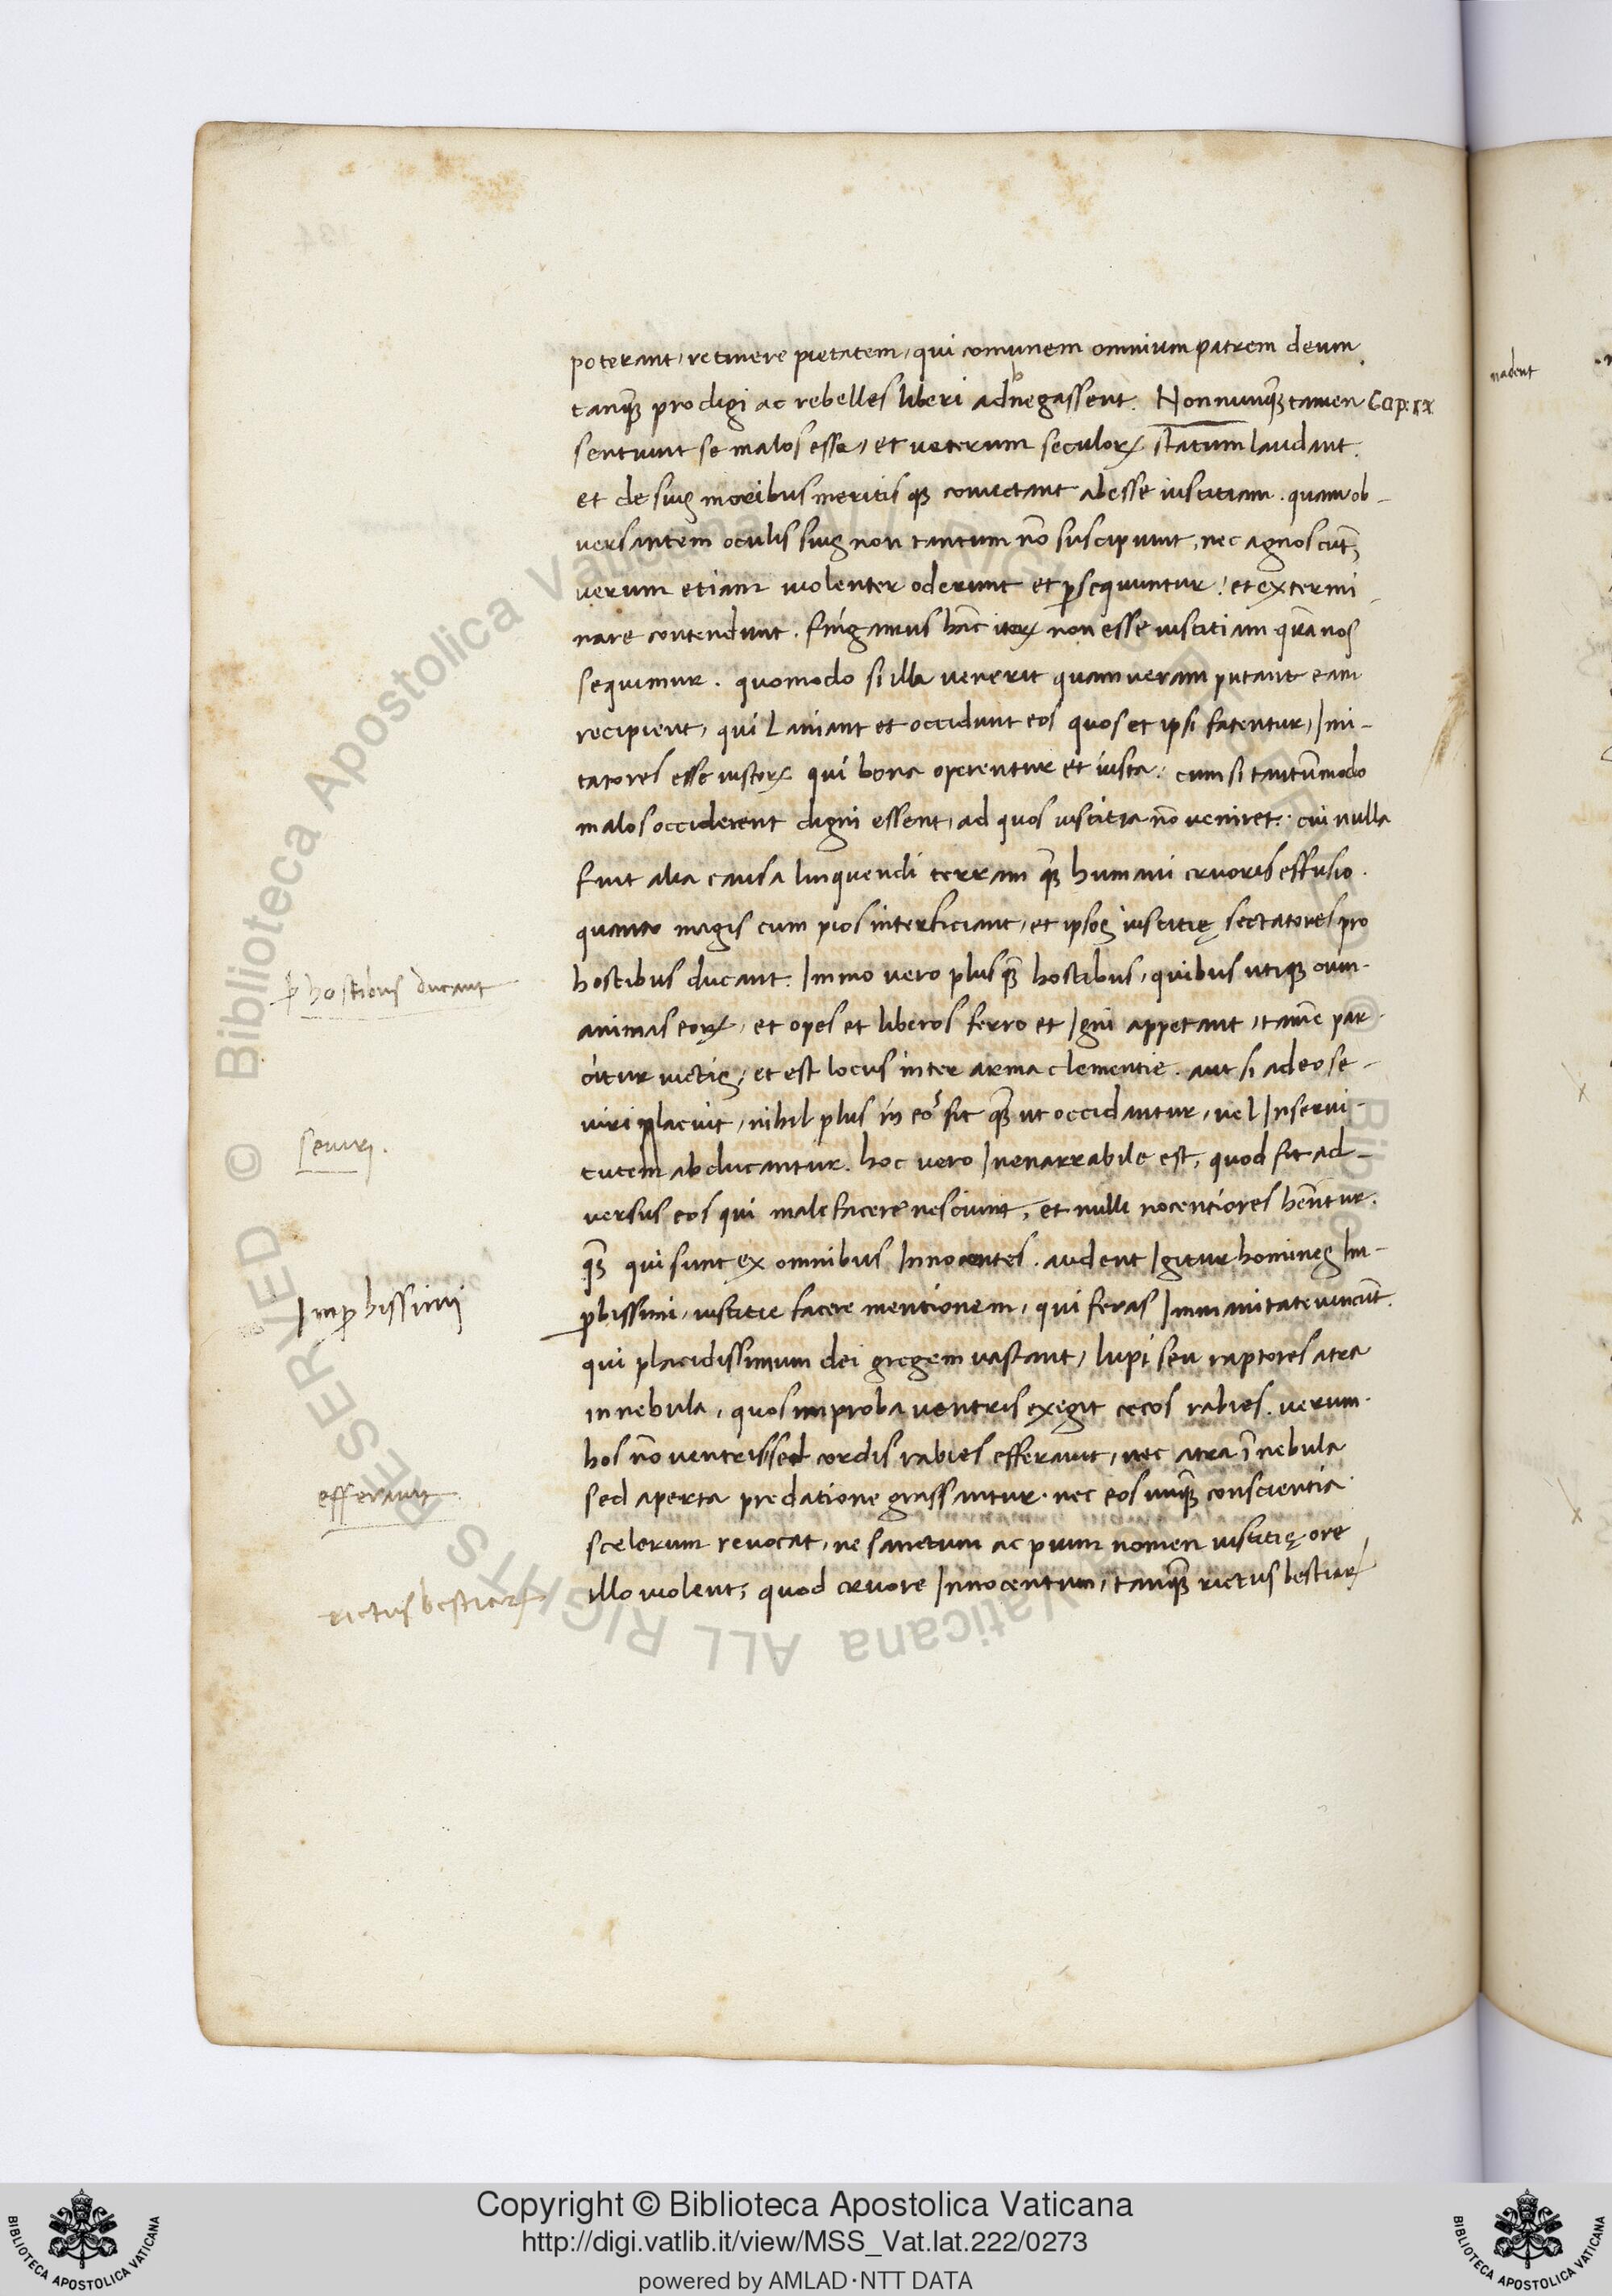 poterant, retinere pietatem, qui comunem omnium patrem deum
tanqꝫ prodigi ac rebelles liberi adnegassent. Nonnunqꝫ tamen Cap: ix
sentiunt se malos esse, et ueterum seculoꝝ statum laudant.
et de suis moribus meritis qꝫ coniectant abesse iustitiam. quam ob-
uersantem oculis suis non tantum nō suscipiunt, nec agnoscūt,
uerum etiam uiolenter oderunt et ꝑsequuntur, et extermi
nare contendunt. fingamus hāc itaꝫ non esse iustitiam quā nos
sequimur. quomodo si illa uenerit quam ueram putant eam
recipient, qui Laniant et occidunt eos quos et ipsi fatentur, Imi-
tatores esse iustoꝝ qui bona operentur et iusta: cum si tantūmodo
malos occiderent digni essent, ad quos iustitia nō ueniret. cui nulla
fuit alia causa linquendi terram qꝫ humani cruoris effusio.
quanto magis cum pios interficiant, et ipsos iustitię sectatores pro
hostibus ducant. Immo uero plus qꝫ hostibus, quibus utiqꝫ cum
ꝑ hostibus ducant
animas eoꝝ, et opes et liberos ferro et Igni appetant, tamē par
citur uictis, et est locus inter arma clementie. aut si adeo se-
uiri placuit, nihil plus in eos fit qꝫ ut occidantur, uel Inserui-
seuiri.
tutem abducantur. hoc uero Inenarrabile est, quod fit ad-
uersus eos qui malefacere nesciunt, et nulli nocentiores hēntur.
qꝫ qui sunt ex omnibus Innocentes. audent Igitur homines Im-
Imꝓbissimi
ꝓbissimi, iustitie facere mentionem, qui feras Immanitate uincūt.
qui placidissimum dei gregem uastant, lupi seu raptores atra
in nebula, quos improba uentris exegit cecos rabies. uerum
hos nō uentris sed cordis rabies efferauit, nec atra ī nebula
efferauit
sed aperta predatione grassantur. nec eos unqꝫ conscientia
scelerum reuocat, ne sanctum ac pium nomen iustitię ore
illo uiolent, quod cruore Innocentum, tanqꝫ rictus bestiaꝝ
rictus bestiaꝝ
madent
Copyright © Biblioteca Apostolica Vaticana
http://digi.vatlib.it/view/MSS_Vat.lat.222/0273
powered by AMLAD·NTT DATA
BIBLIOTECA APOSTOLICA VATICANA
BIBLIOTECA APOSTOLICA VATICANA
© Biblioteca Apostolica Vaticana ALL RIGHTS RESERVED